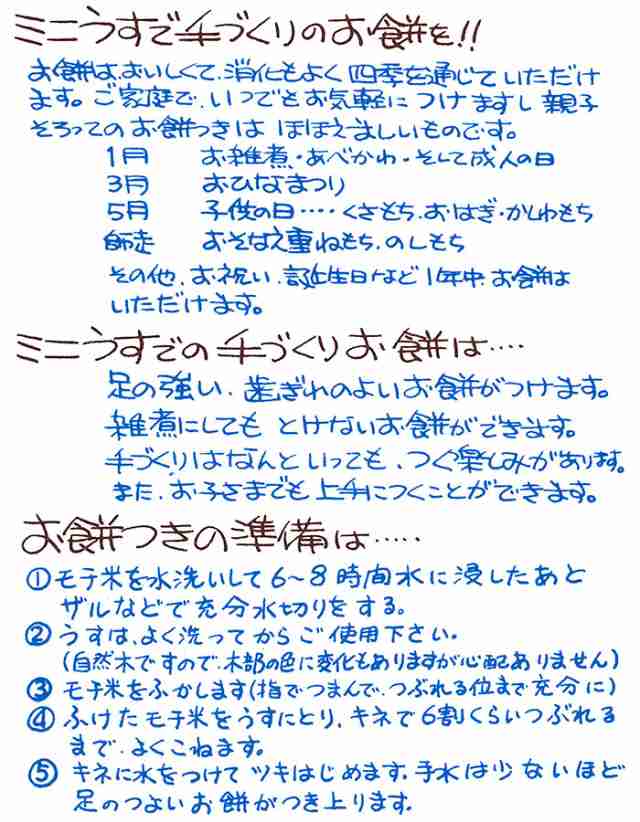 ミニうすで手づくりのお餅を!!
お餅は、おいしくて、消化もよく四季を通じていただけ
ます。ご家庭で、いつでもお気軽につけますし親子
そろってのお餅つきはほほえましいものです。
1月 お雑煮・あべかわ・そして成人の日
3月 おひなまつり
5月 子供の日‥‥くさもち、おはぎ・かしわもち
師走 おそなえ重ねもち、のしもち
その他、お祝い、誕生日など1年中、お餅は
いただけます。
ミニうすでの手づくりお餅は‥‥
足の強い、歯ぎれのよいお餅がつけます。
雑煮にしてもとけないお餅ができます。
手づくりはなんといっても、つく楽しみがあります。
また、お子さまでも上手につくことができます。
お餅つきの準備は‥‥‥
①モチ米を水洗いして6〜8時間水に浸したあと
ザルなどで充分水切りをする。
②うすは、よく洗ってからご使用下さい。
(自然木ですので、木部の色に変化もありますが心配ありません)
③モチ米をふかします(指でつまんで、つぶれる位まで充分に)
④ふけたモチ米をうすにとり、キネで6割くらいつぶれる
まで、よくこねます。
⑤キネに水をつけてツキはじめます。手水は少ないほど
足のつよいお餅がつき上ります。